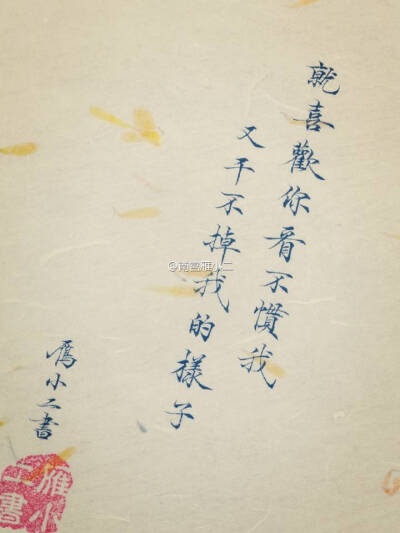 就喜歡你看不慣我
又干不掉我的樣子
鴈小二書
雁小
二書
雁小二